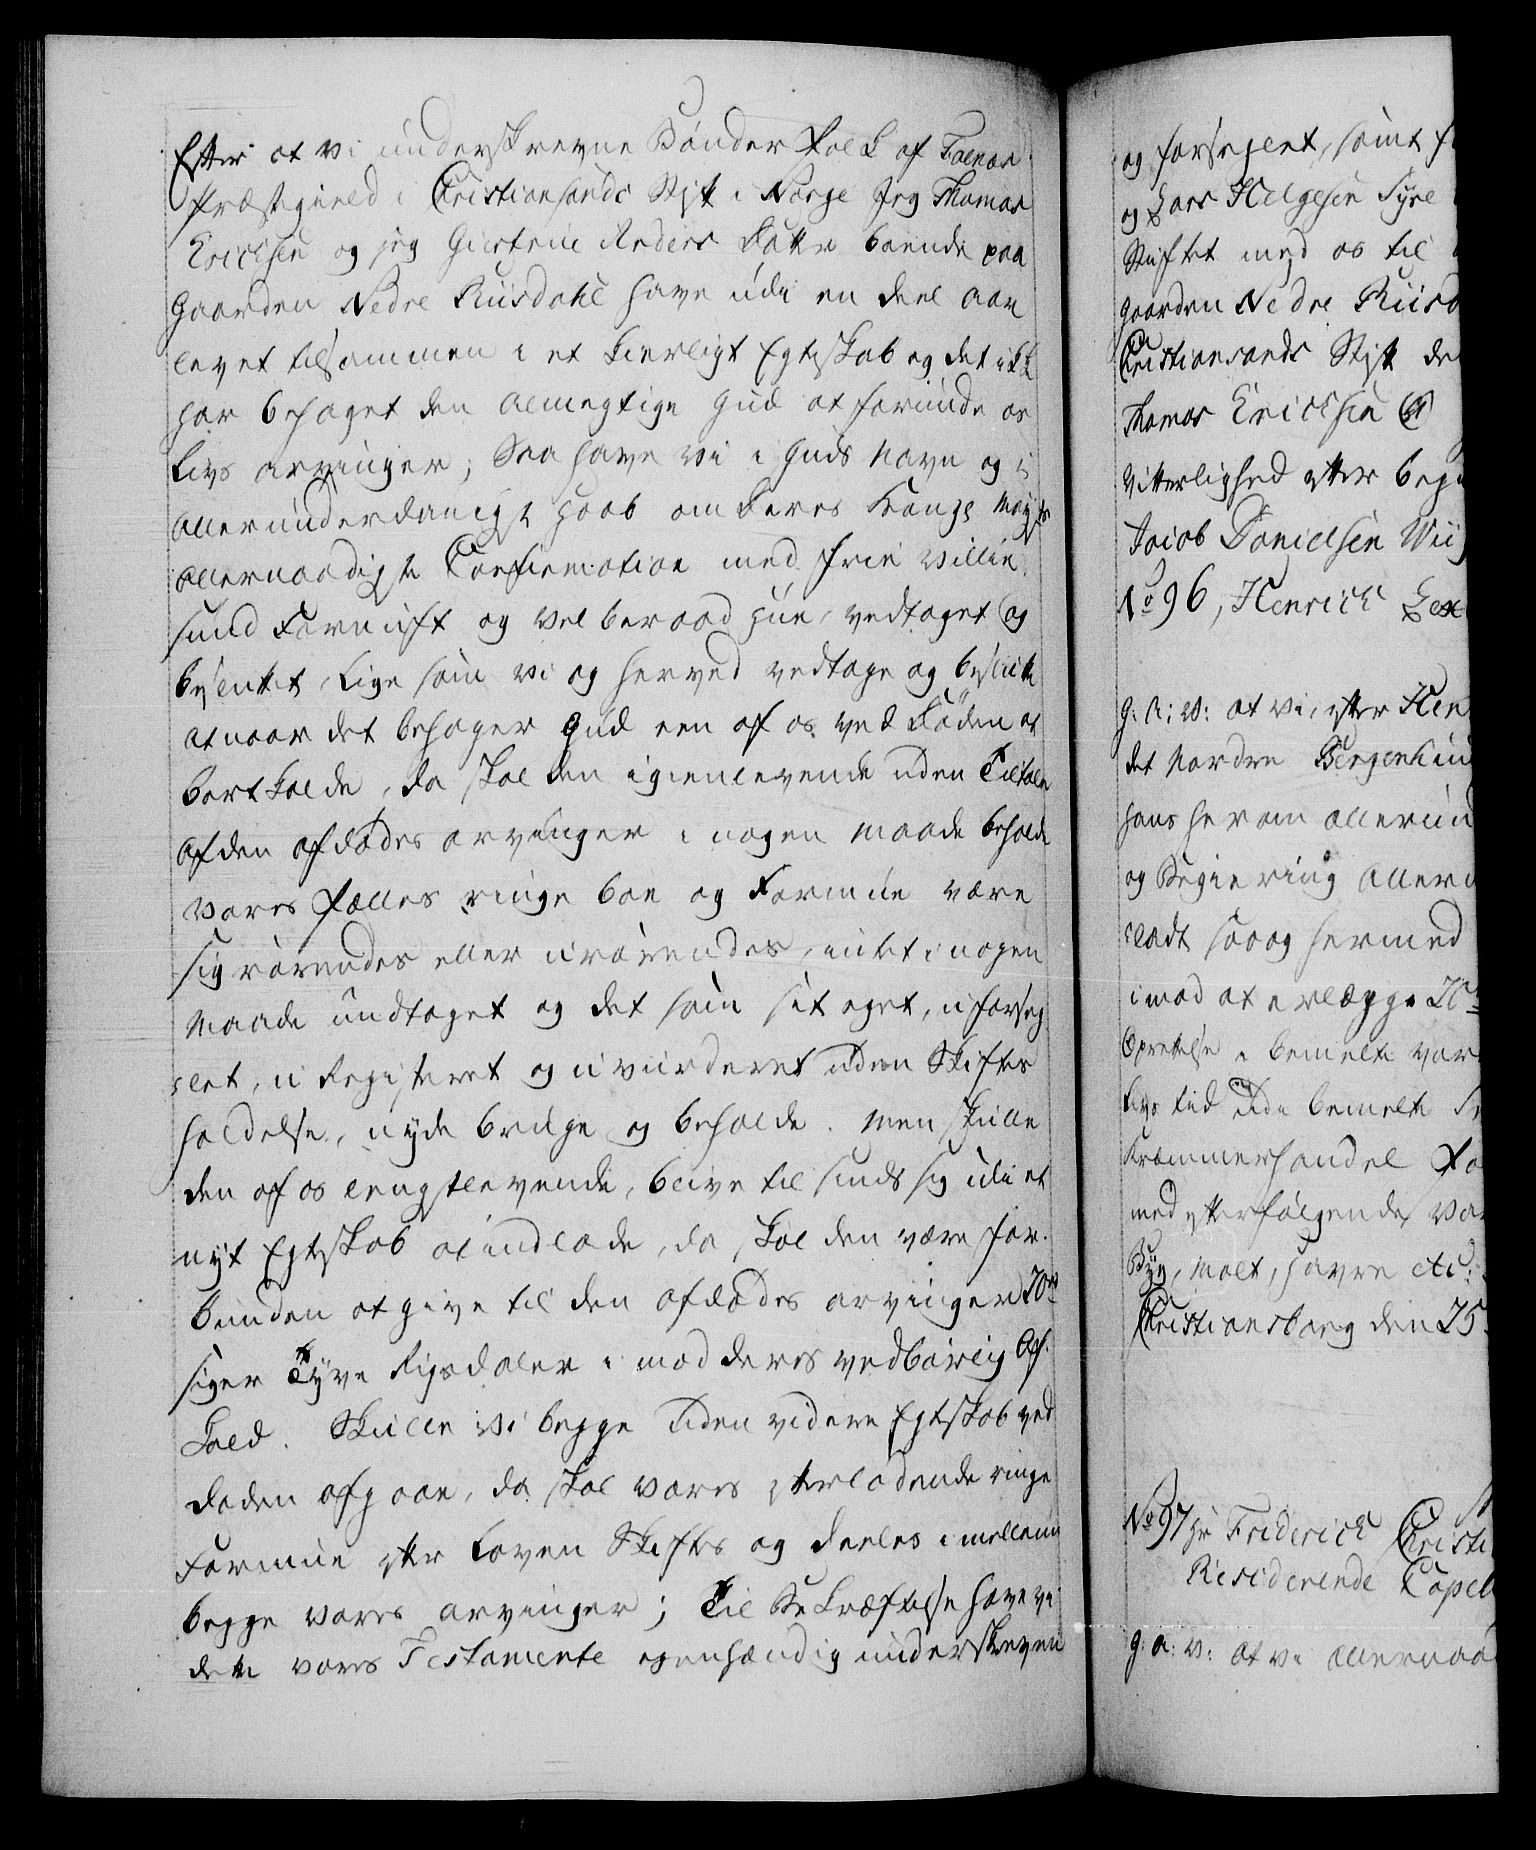 Efter at vi underskrevne Bønder Folk af
Præstegield i Christiansands Stift i Norge Jeg Thomas
Erichsen og jeg Giertrue Anders Datter boende paa
Gaarden Nedre Riisdahl have udi en deel aar
levet tilsammen i et kierligt Egteskab og det ikke
har behaget den almegtige Gud at forunde os
Livs arvinger; Saa have vi i Guds Navn og i
allerunderdanigst haab om Deres Kongl May:ts
allernaadigste Confirmation med frie villie
sund Fornuft og vel beraad Hue, vedtaget og
besluttet, Lige som vi og herved vedtage og beslutte
at naar det behager Gud een af os ved Døden at
bortkalde, da skal den igienlevende uden Tiltale
af den afdødes arvinger i nogen maade beholde
vores Fælles ringe boe og Formue være
sig rørendes eller urørendes, intet i nogen
maade undtaget og det som sit eget, uforseg-
let, u Registeret og u vurderet uden Skiftes
holdelse, nyde bruge og beholde. Men skulle
den af os lengstlevende, blive til sinds sig udi et
nyt Egteskab at indlade, da skal den være for-
bunden at give til den afdødes arvinger 20rd
siger Tyve Rigsdaler i mod deres vedbørlig Af-
kald. Skulle vi begge uden videre Egteskab ved
Døden afgaae, da skal vores efterladende ringe
Formue efter Loven Skiftes og deeles imellem
begge vores arvinger; Til Bekræftelse have vi
dette vores Testamente egenhændig underskreven
og forseglet, samt f
og Lars Helgesen Syre
Stiftet med os til
Gaarden Nedre Riisd
Christiansands Stift de
Thomas Erichsen
Vitterlighed efter beg
Jacob Danielsen Wii
No 96, Henrich
g: A: V: at vi, efter Hen
det Nordre Bergenhuu
hans herom allerund
og Begiering allern
ladt saa og hermed
imod at erlægge 20
Oprettelse i bemelte
livs tid udi bemelte
Kræmmerhandel Fo
med efterfølgende Va
Byg, Malt, havre etc:
Christiansborg den 25
No 97 Hr Friderich Christi
Residerende Capel
g: a: v: at vi allernaa